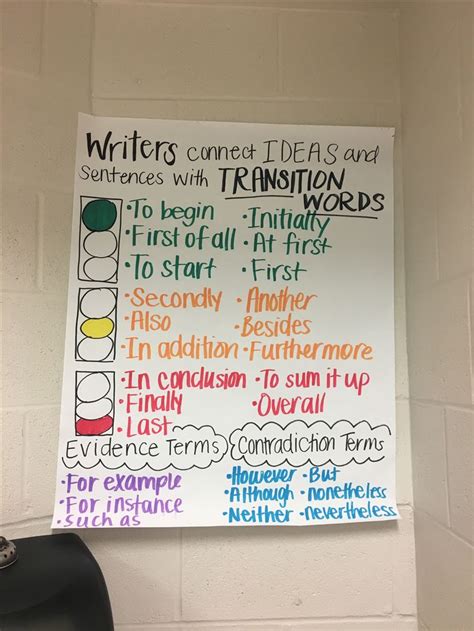 Writers connect IDEAS and
sentences with TRANSITION
WORDS
• To begin • Initially
• First of all • At first
• To start • First
• Secondly • Another
• Also • Besides
• In addition • Furthermore
• In conclusion • To sum it up
• Finally • Overall
• Last
Evidence Terms Contradiction Terms
• For example • However • But
• For instance • Although • nonetheless
• such as • Neither • nevertheless